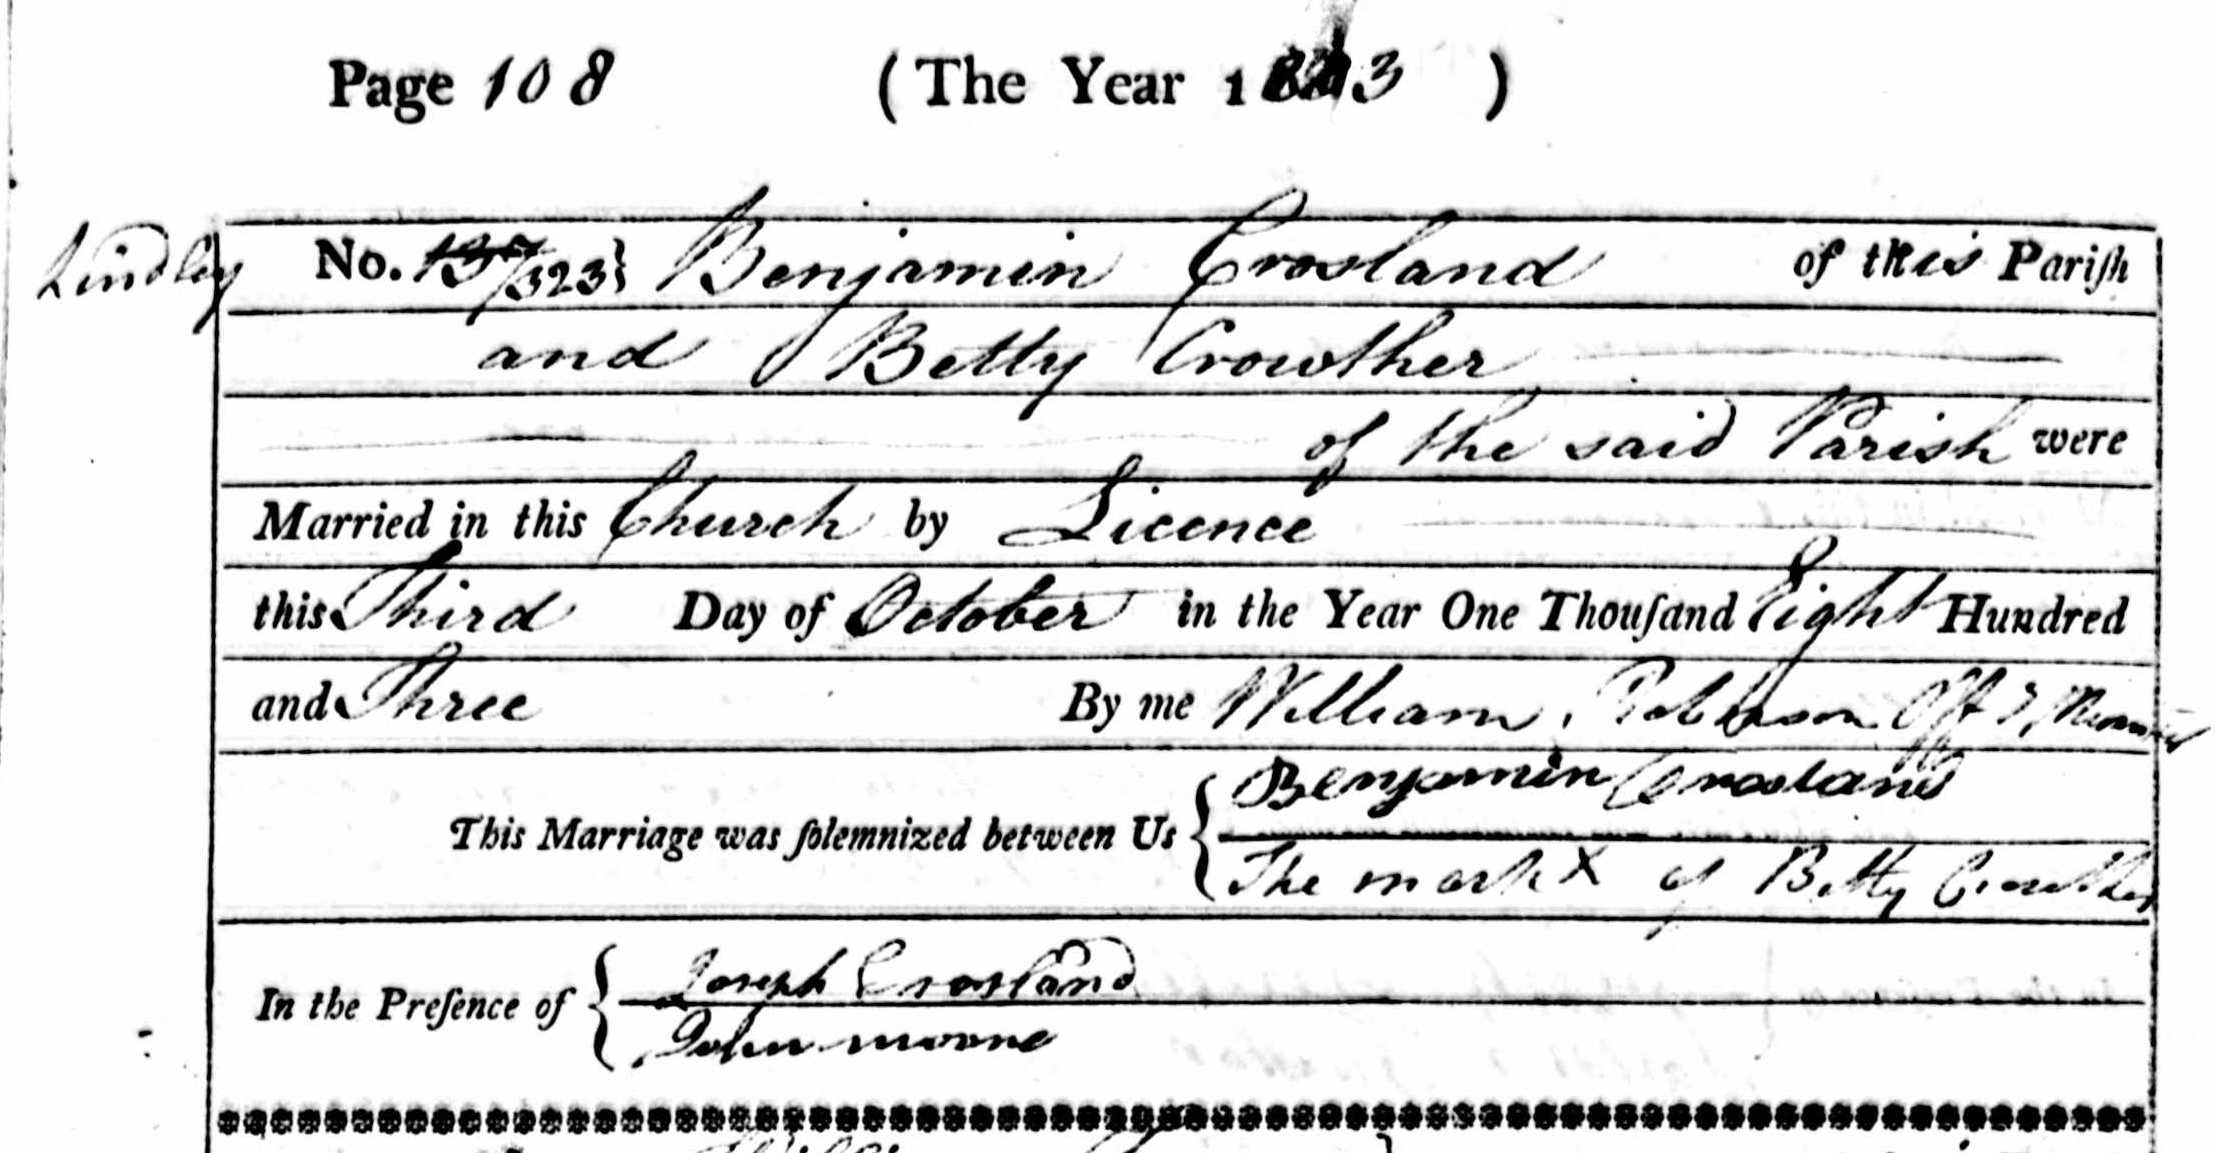 Page 108 (The Year 1803)
Lindley No. 137/323} Benjamin Crosland of this Pariſh
and Betty Crowther
of the said Parish were
Married in this Church by Licence
this Third Day of October in the Year One Thouſand Eight Hundred
and Three By me William Robinson Off
This Marriage was ſolemnized between Us { Benjamin Crosland
The mark X of Betty Crowther
In the Preſence of { Joseph Crosland
John moore